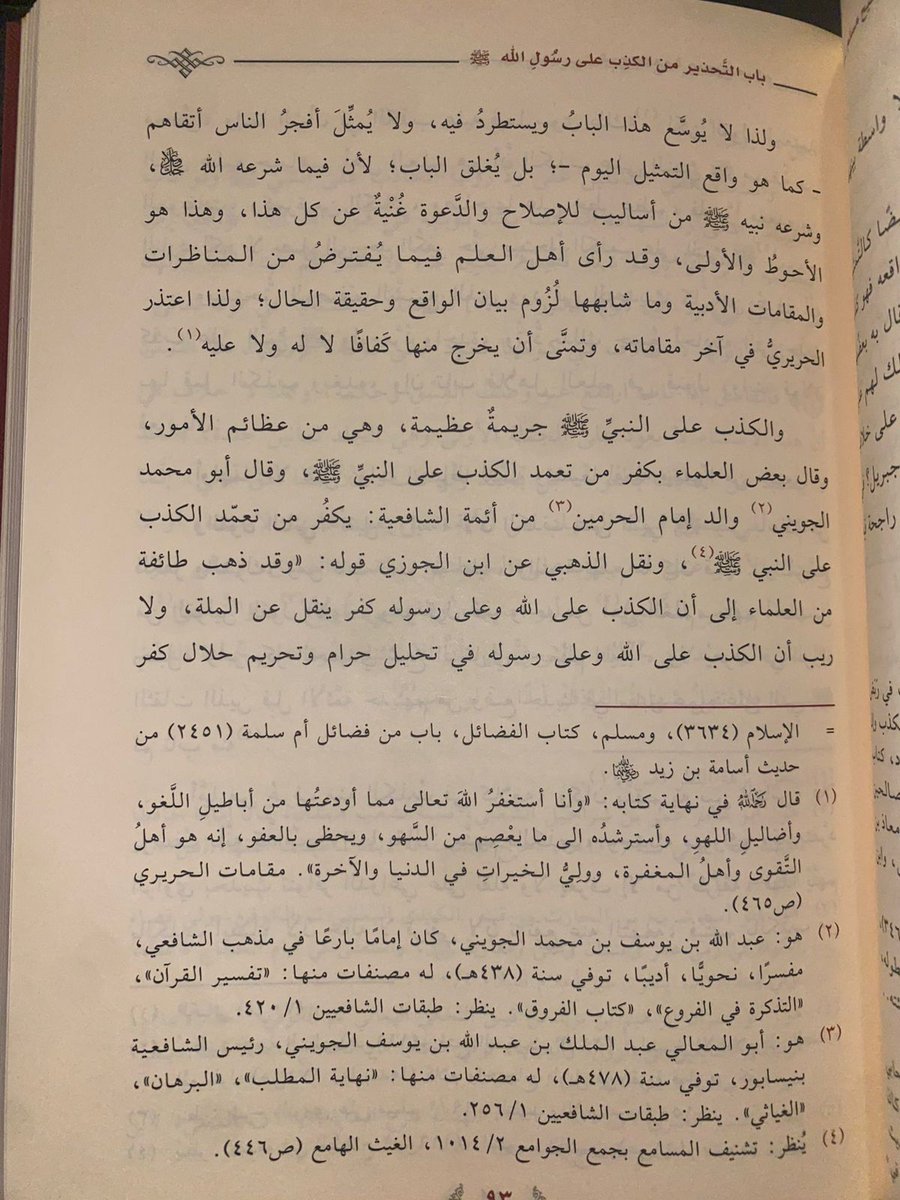 باب التَّحذير من الكذِب على رسُولِ الله ﷺ
ولذا لا يُوسَّع هذا البابُ ويستطردُ فيه، ولا يُمثِّلَ أفجرُ الناس أتقاهم
- كما هو واقع التمثيل اليوم -؛ بل يُغلق الباب؛ لأن فيما شرعه الله ﷻ،
وشرعه نبيه ﷺ من أساليب للإصلاح والدَّعوة غُنْيةٌ عن كل هذا، وهذا هو
الأحوطُ والأولى، وقد رأى أهل العلم فيما يُفترضُ من المناظرات
والمقامات الأدبية وما شابهها لُزُوم بيان الواقع وحقيقة الحال؛ ولذا اعتذر
الحريريُّ في آخر مقاماته، وتمنَّى أن يخرج منها كَفافًا لا له ولا عليه(١).
والكذب على النبيِّ ﷺ جريمةٌ عظيمة، وهي من عظائم الأمور،
وقال بعض العلماء بكفر من تعمد الكذب على النبيِّ ﷺ، وقال أبو محمد
الجويني(٢) والد إمام الحرمين(٣) من أئمة الشافعية: يكفُر من تعمّد الكذب
على النبي ﷺ(٤)، ونقل الذهبي عن ابن الجوزي قوله: «وقد ذهب طائفة
من العلماء إلى أن الكذب على الله وعلى رسوله كفر ينقل عن الملة، ولا
ريب أن الكذب على الله وعلى رسوله في تحليل حرام وتحريم حلال كفر
= الإسلام (٣٦٣٤)، ومسلم، كتاب الفضائل، باب من فضائل أم سلمة (٢٤٥١) من
حديث أسامة بن زيد رضي الله عنهما.
(١) قال رحمه الله في نهاية كتابه: «وأنا أستغفرُ اللهَ تعالى مما أودعتُها من أباطيلِ اللَّغو،
وأضاليلِ اللهوِ، وأسترشدُه الى ما يعْصِم من السَّهو، ويحظى بالعفو، إنه هو أهلُ
التَّقوى وأهلُ المغفرة، ووليُّ الخيراتِ في الدنيا والآخرة». مقامات الحريري
(ص٤٦٥).
(٢) هو: عبد الله بن يوسف بن محمد الجويني، كان إمامًا بارعًا في مذهب الشافعي،
مفسرًا، نحويًّا، أديبًا، توفي سنة (٤٣٨هـ)، له مصنفات منها: «تفسير القرآن»،
«التذكرة في الفروع»، «كتاب الفروق». ينظر: طبقات الشافعيين ١/ ٤٢٠.
(٣) هو: أبو المعالي عبد الملك بن عبد الله بن يوسف الجويني، رئيس الشافعية
بنيسابور، توفي سنة (٤٧٨هـ)، له مصنفات منها: «نهاية المطلب»، «البرهان»،
«الغياثي». ينظر: طبقات الشافعيين ١/ ٢٥٦.
(٤) يُنظر: تشنيف المسامع بجمع الجوامع ٢/ ١٠١٤، الغيث الهامع (ص٤٤٦).
٩٣